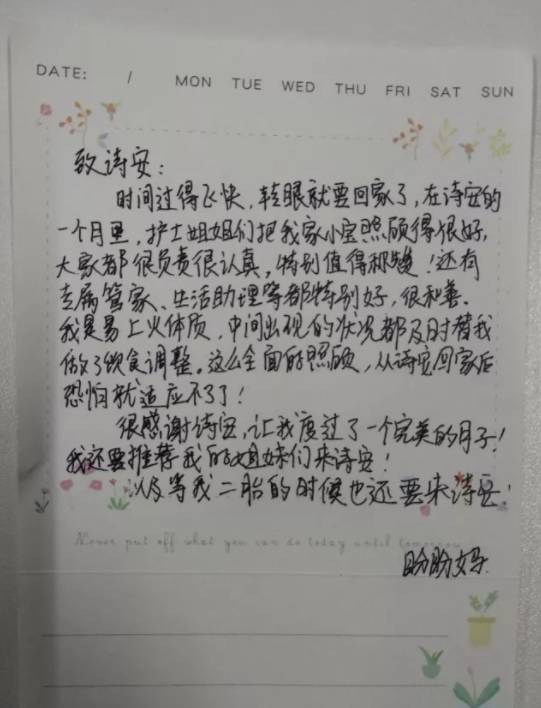 DATE: / MON TUE WED THU FRI SAT SUN
致诗安：
时间过得飞快，转眼就要回家了，在诗安的
一个月里，护士姐姐们把我家小宝照顾得很好，
大家都很负责很认真，特别值得表扬！还有
专属管家、生活助理等都特别好，很和善。
我是易上火体质，中间出现的状况都及时替我
做了饮食调整。这么全面的照顾，从诗安回家后
恐怕就适应不了了！
很感谢诗安，让我度过了一个完美的月子！
我还要推荐我的姐妹们来诗安！
以及等我二胎的时候也还要来诗安！
Never put off what you can do today until tomorrow
盼盼妈